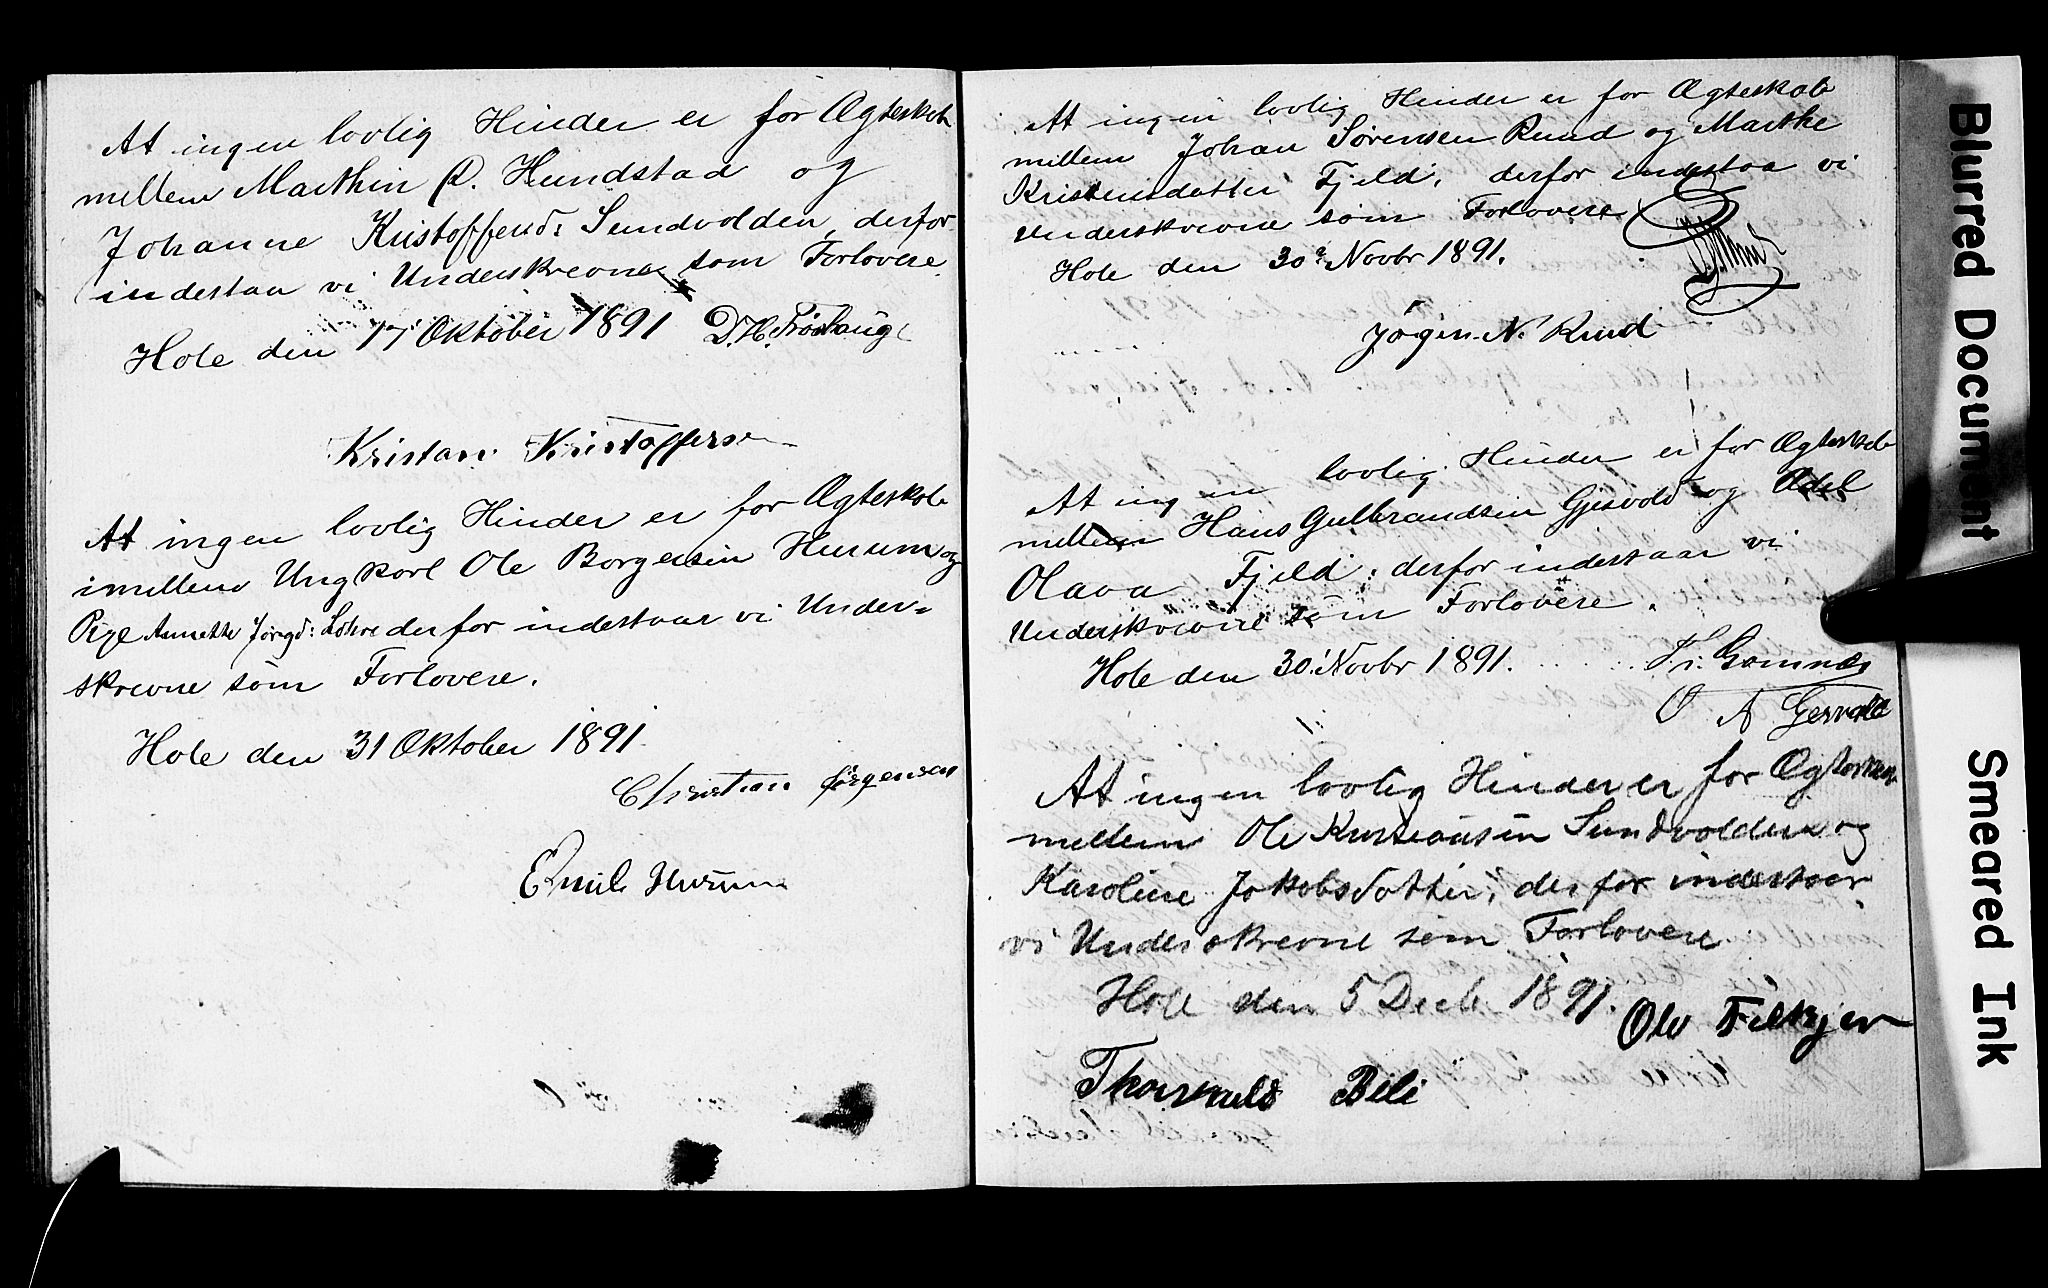 At ingen lovlig Hinder er for Ægteskab
mellem Marthin P. Hundstad og
Johanne Kristoffersd: Sundvolden, derfor
indestaa vi Underskrevne som Forlovere.
Hole den 17 Oktober 1891 D. H. Frøshaug
Kristian Kristoffersen
At ingen lovlig Hinder er for Ægteskab
imellem Ungkarl Ole Borgersen Hurum og
Pige Annette Jørgd: Lohre derfor indestaar vi Under-
skrevne som Forlovere.
Hole den 31 Oktober 1891
Christian Jørgensen
Emil Hurum
At ingen lovlig Hinder er for Ægteskab
mellem Johan Sørensen Ruud og Marthe
Kristensdatter Fjeld, derfor indestaa vi
Underskrevne som Forlovere
Hole den 30 Novbr 1891.
Jørgen N. Ruud
At ingen lovlig Hinder er for Ægteskab
mellem Hans Gulbrandsen Gjesvold og Adel
Olava Fjeld; derfor indestaar vi
Underskrevne som Forlovere.
Hole den 30 Novbr 1891. Gomnæs
O A Gesvold
At ingen lovlig Hinder er for Ægteskab
mellem Ole Kristiansen Sundvolden og
Karoline Jakobsdatter; derfor indestaar
vi Underskrevne som Forlovere
Hole den 5 Decb. 1891. Ole
Thorvald Bili
Blurred Document
Smeared Ink